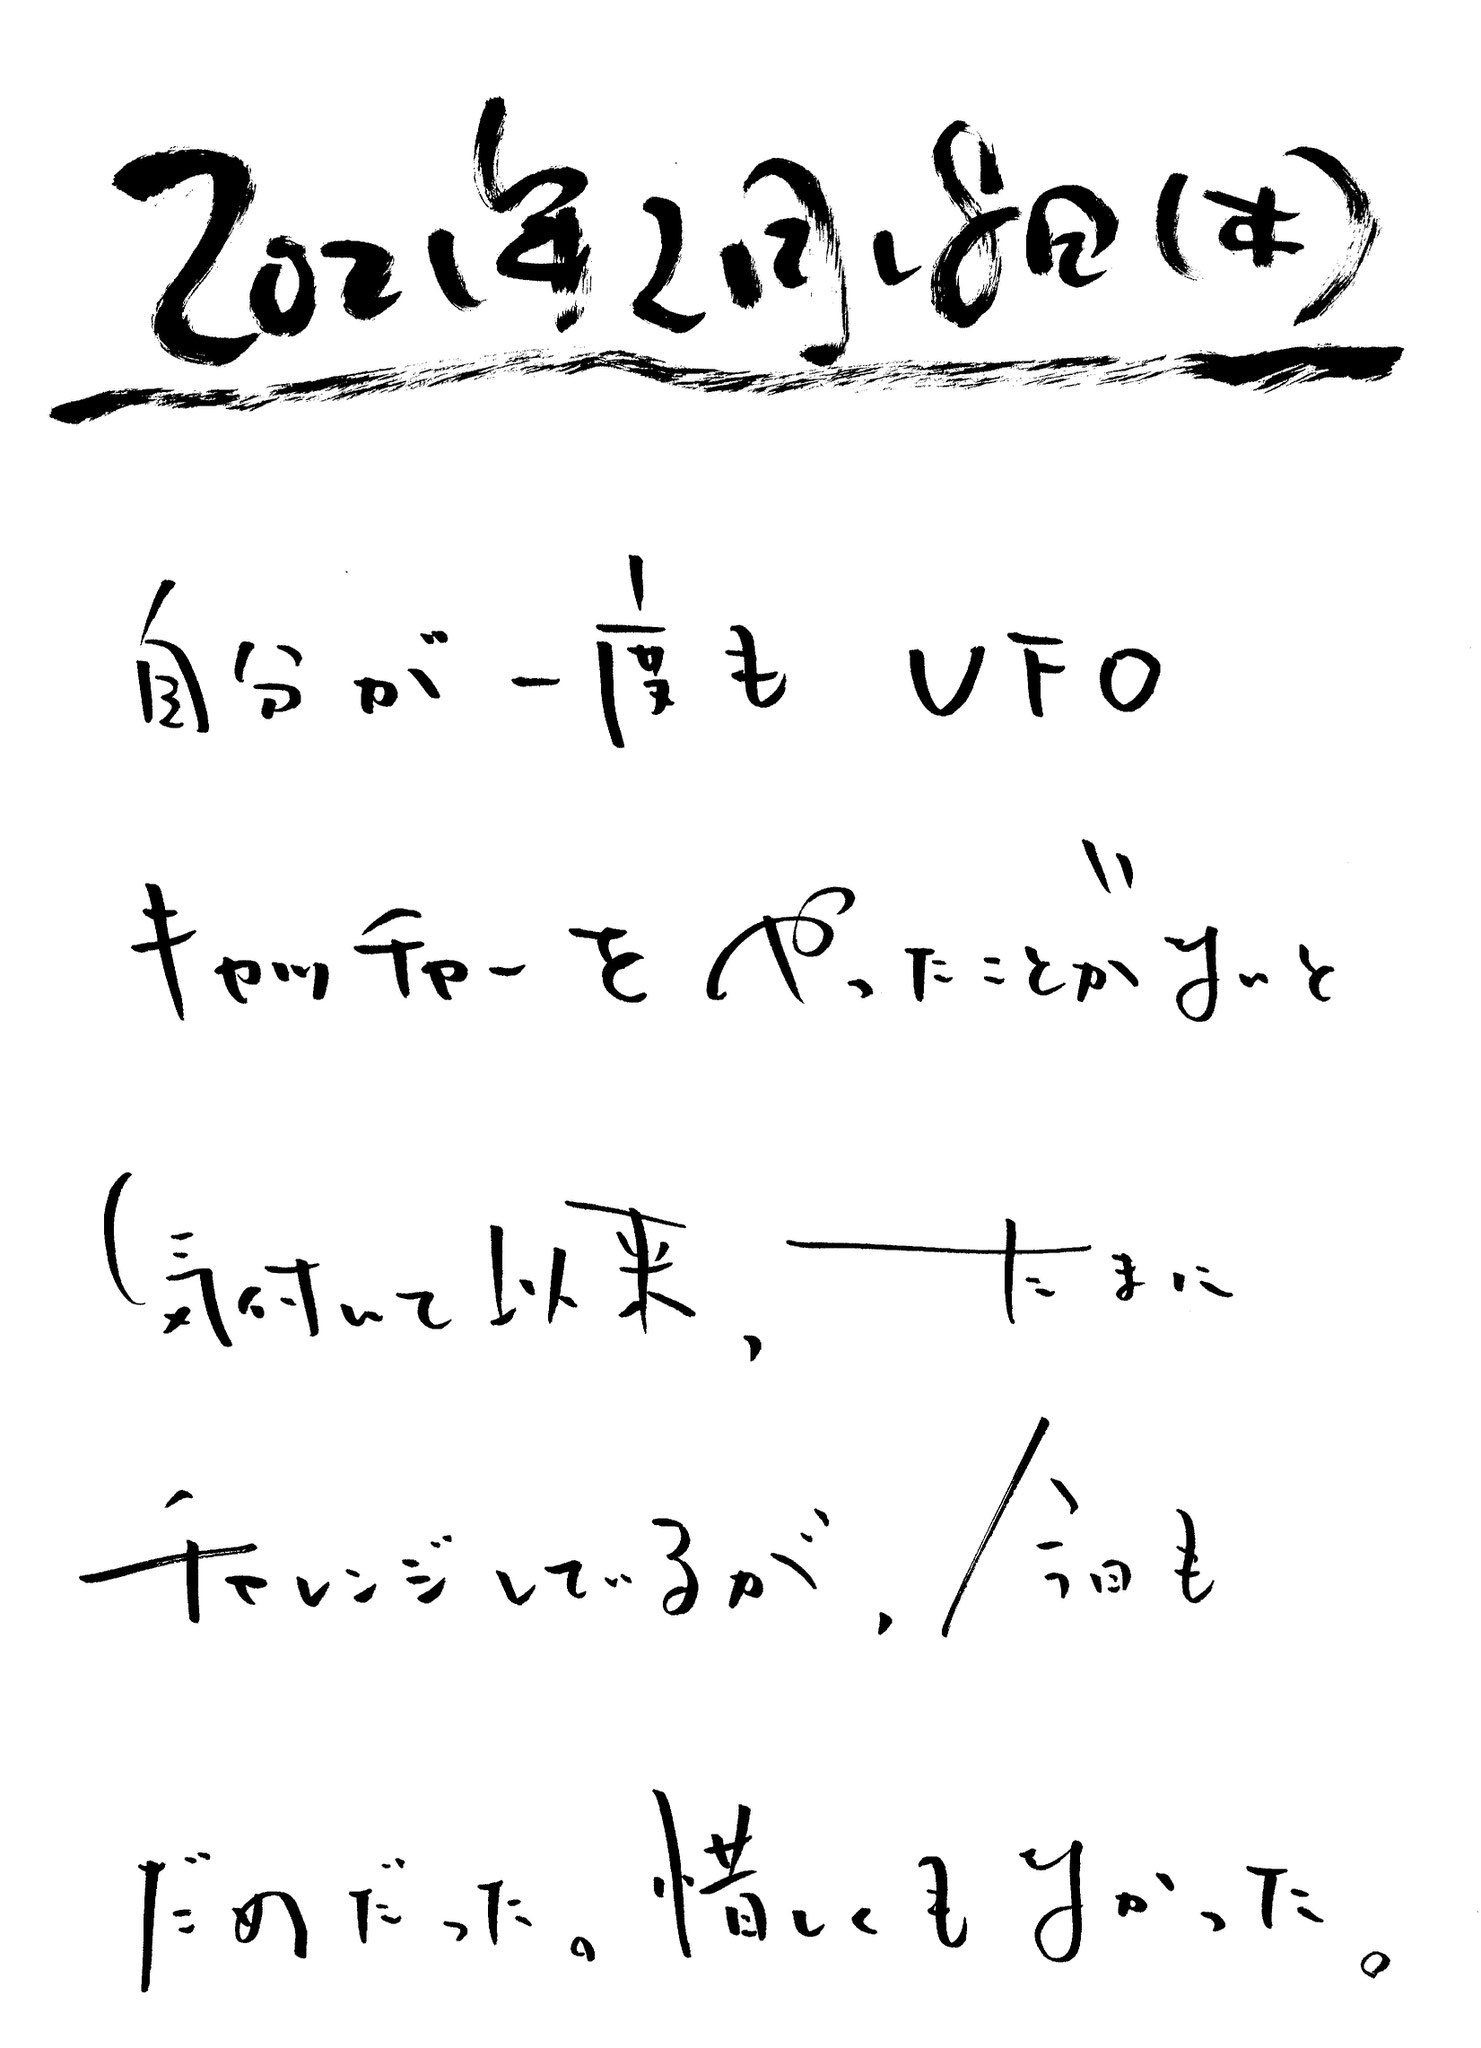 2021年2月18日(木)
自分が一度も UFO
キャッチャーをやったことがないと
(気付いて以来、たまに
チャレンジしているが、/今日も
だめだった。惜しくもなかった。